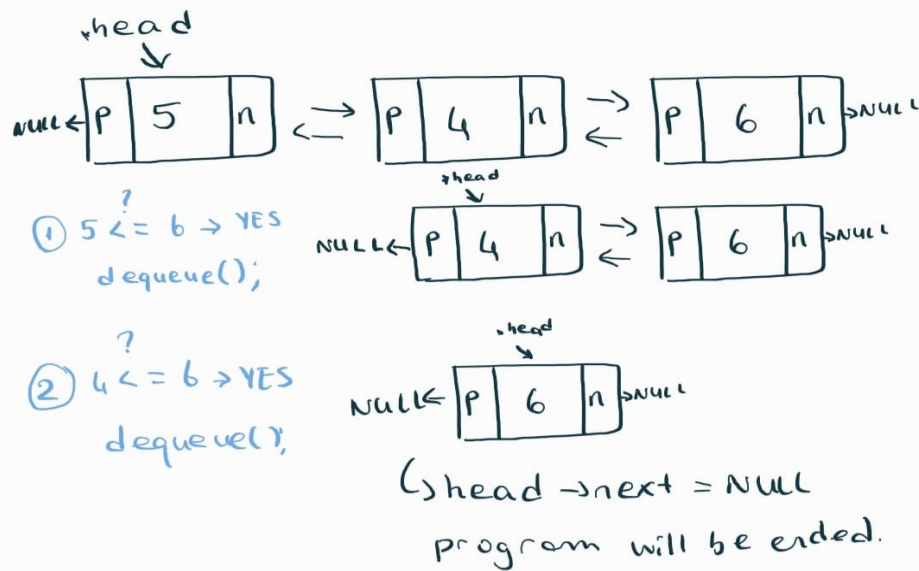 *head
NULL← P 5 n → ← P 4 n → ← P 6 n →NULL
① 5 <=? 6 → YES
dequeue();
*head
NULL← P 4 n → ← P 6 n →NULL
② 4 <=? 6 → YES
dequeue();
*head
NULL← P 6 n →NULL
↳ head →next = NULL
program will be ended.